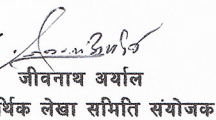 जीवनाथ अर्याल
र्थिक लेखा समिति संयोजक